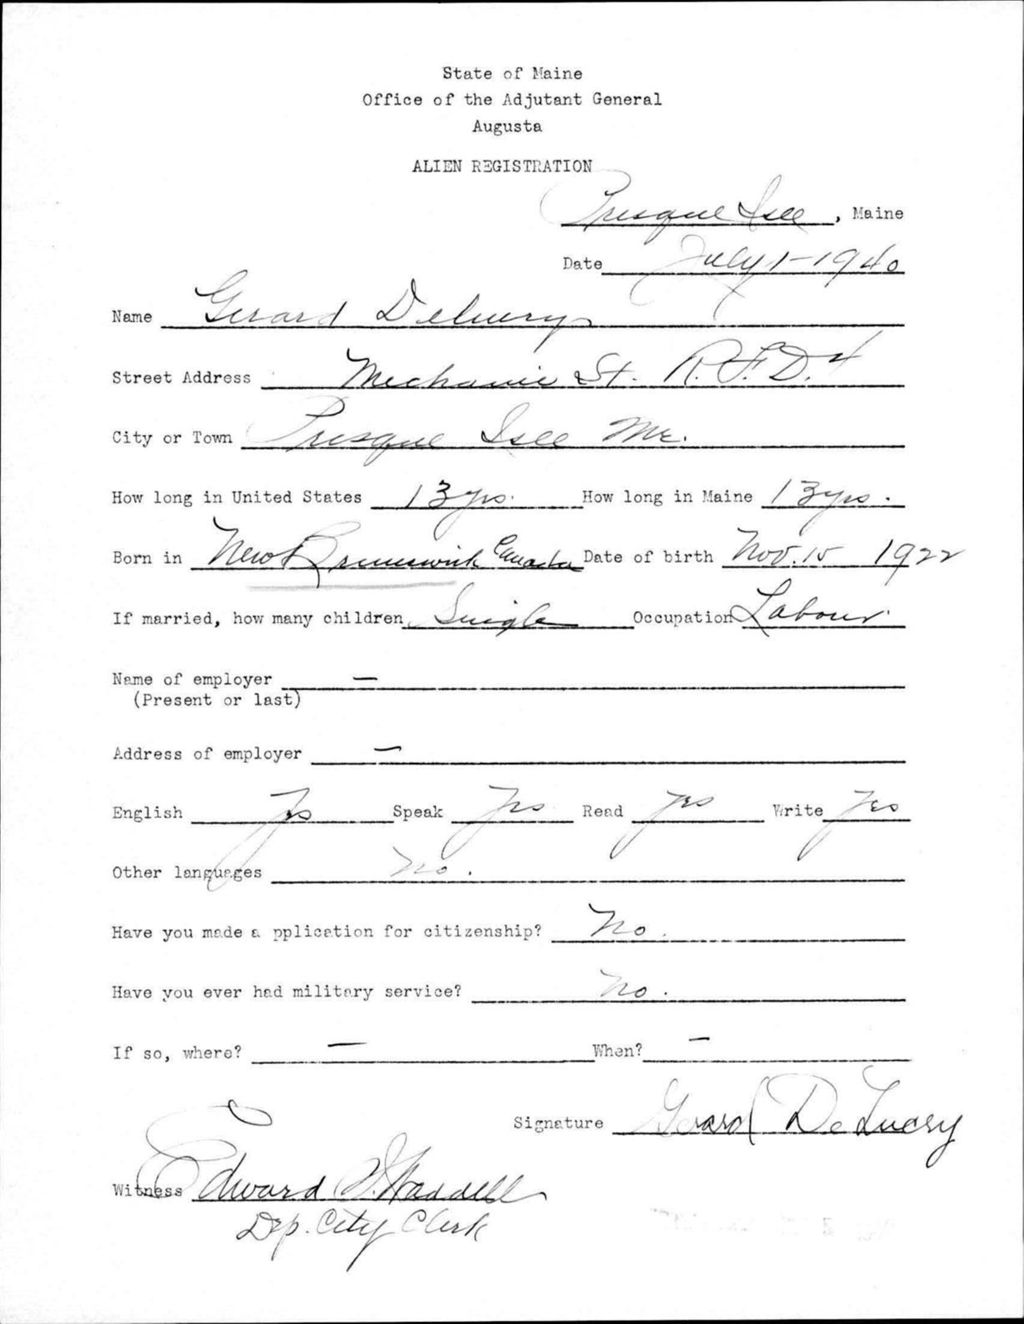 State of Maine
Office of the Adjutant General
Augusta
ALIEN REGISTRATION
Presque Isle, Maine
Date July 1-1940
Name Gerard Deluery
Street Address Mechanic St. R.F.D. 4
City or Town Presque Isle Me.
How long in United States 13 yrs. How long in Maine 13 yrs.
Born in New Brunswick Canada Date of birth Nov. 15 1922
If married, how many children Single Occupation Labour.
Name of employer —
(Present or last)
Address of employer —
English Yes Speak Yes Read Yes Write Yes
Other languages No.
Have you made a pplication for citizenship? No.
Have you ever had military service? No.
If so, where? — When? —
Signature Gerard DeLuery
Witness Edward Waddell
Dep. City Clerk